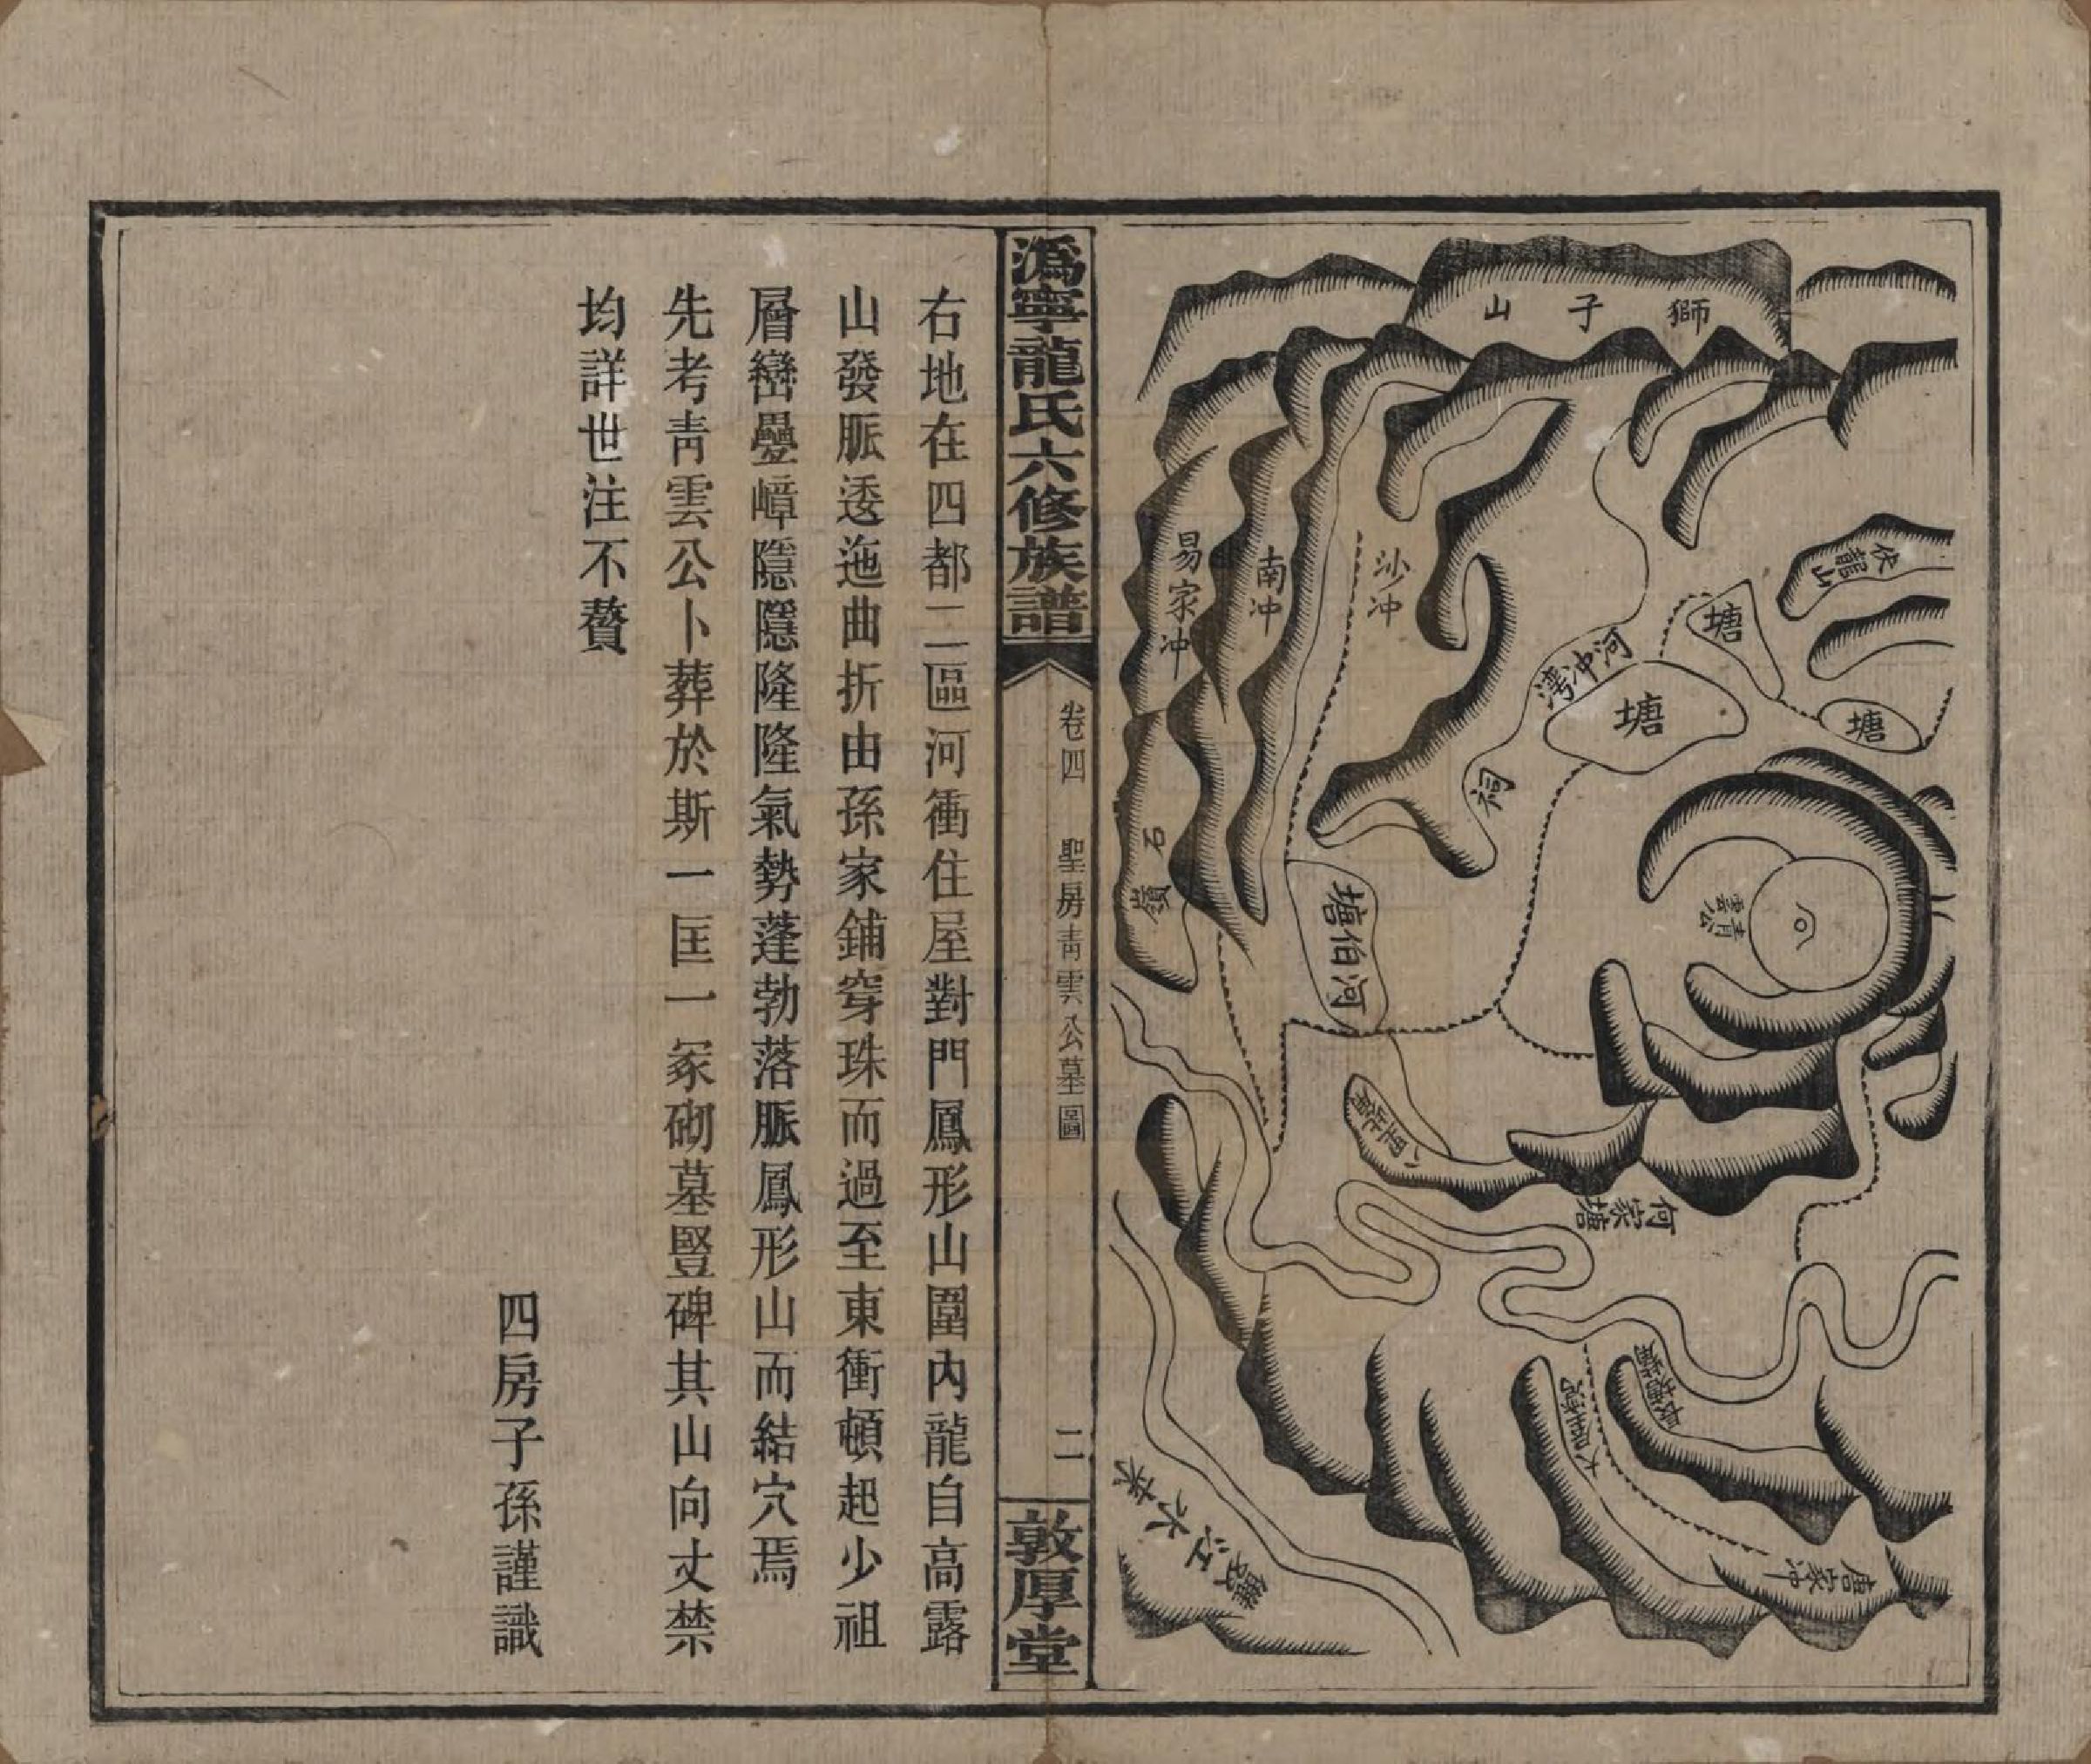 獅子山
伏龍山
塘
塘
塘
河冲灣
祠
沙冲
南冲
易家冲
石嶺
河伯塘
青雲公
何家塘
唐家冲
溈寧龍氏六修族譜
卷四
聖房青雲公墓圖
二
敦厚堂
右地在四都二區河衝住屋對門鳳形山圍內龍自高露
山發脈逶迤曲折由孫家鋪穿珠而過至東衝頓起少祖
層巒疊嶂隱隱隆隆氣勢蓬勃落脈鳳形山而結穴焉
先考青雲公卜葬於斯一匡一冢砌墓豎碑其山向丈禁
均詳世注不贅
四房子孫謹識